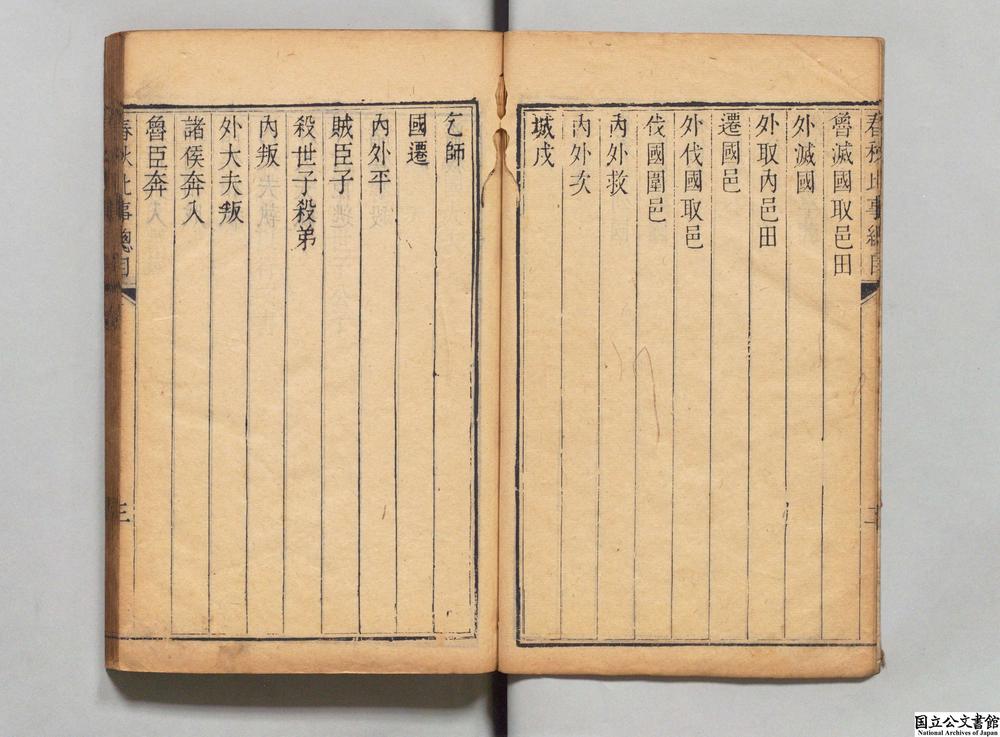 春秋比事總目
魯滅國取邑田
外滅國
外取內邑田
遷國邑
外伐國取邑
伐國圍邑
內外救
內外次
城戍
乞師
國遷
內外平
賊臣子
殺世子殺弟
內叛
外大夫叛
諸侯奔入
魯臣奔
春秋比事總目
三
国立公文書館
National Archives of Japan